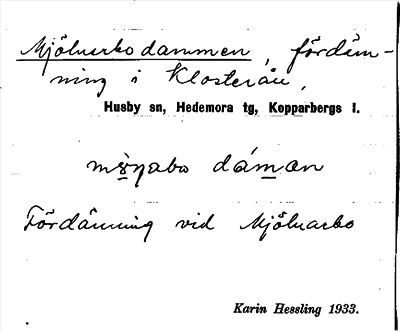 Mjölnarbodammen, fördäm-
ning i Klosterån,
Husby sn, Hedemora tg, Kopparbergs l.
dáman
Fördämning vid Mjölnarbo
Karin Hessling 1933.